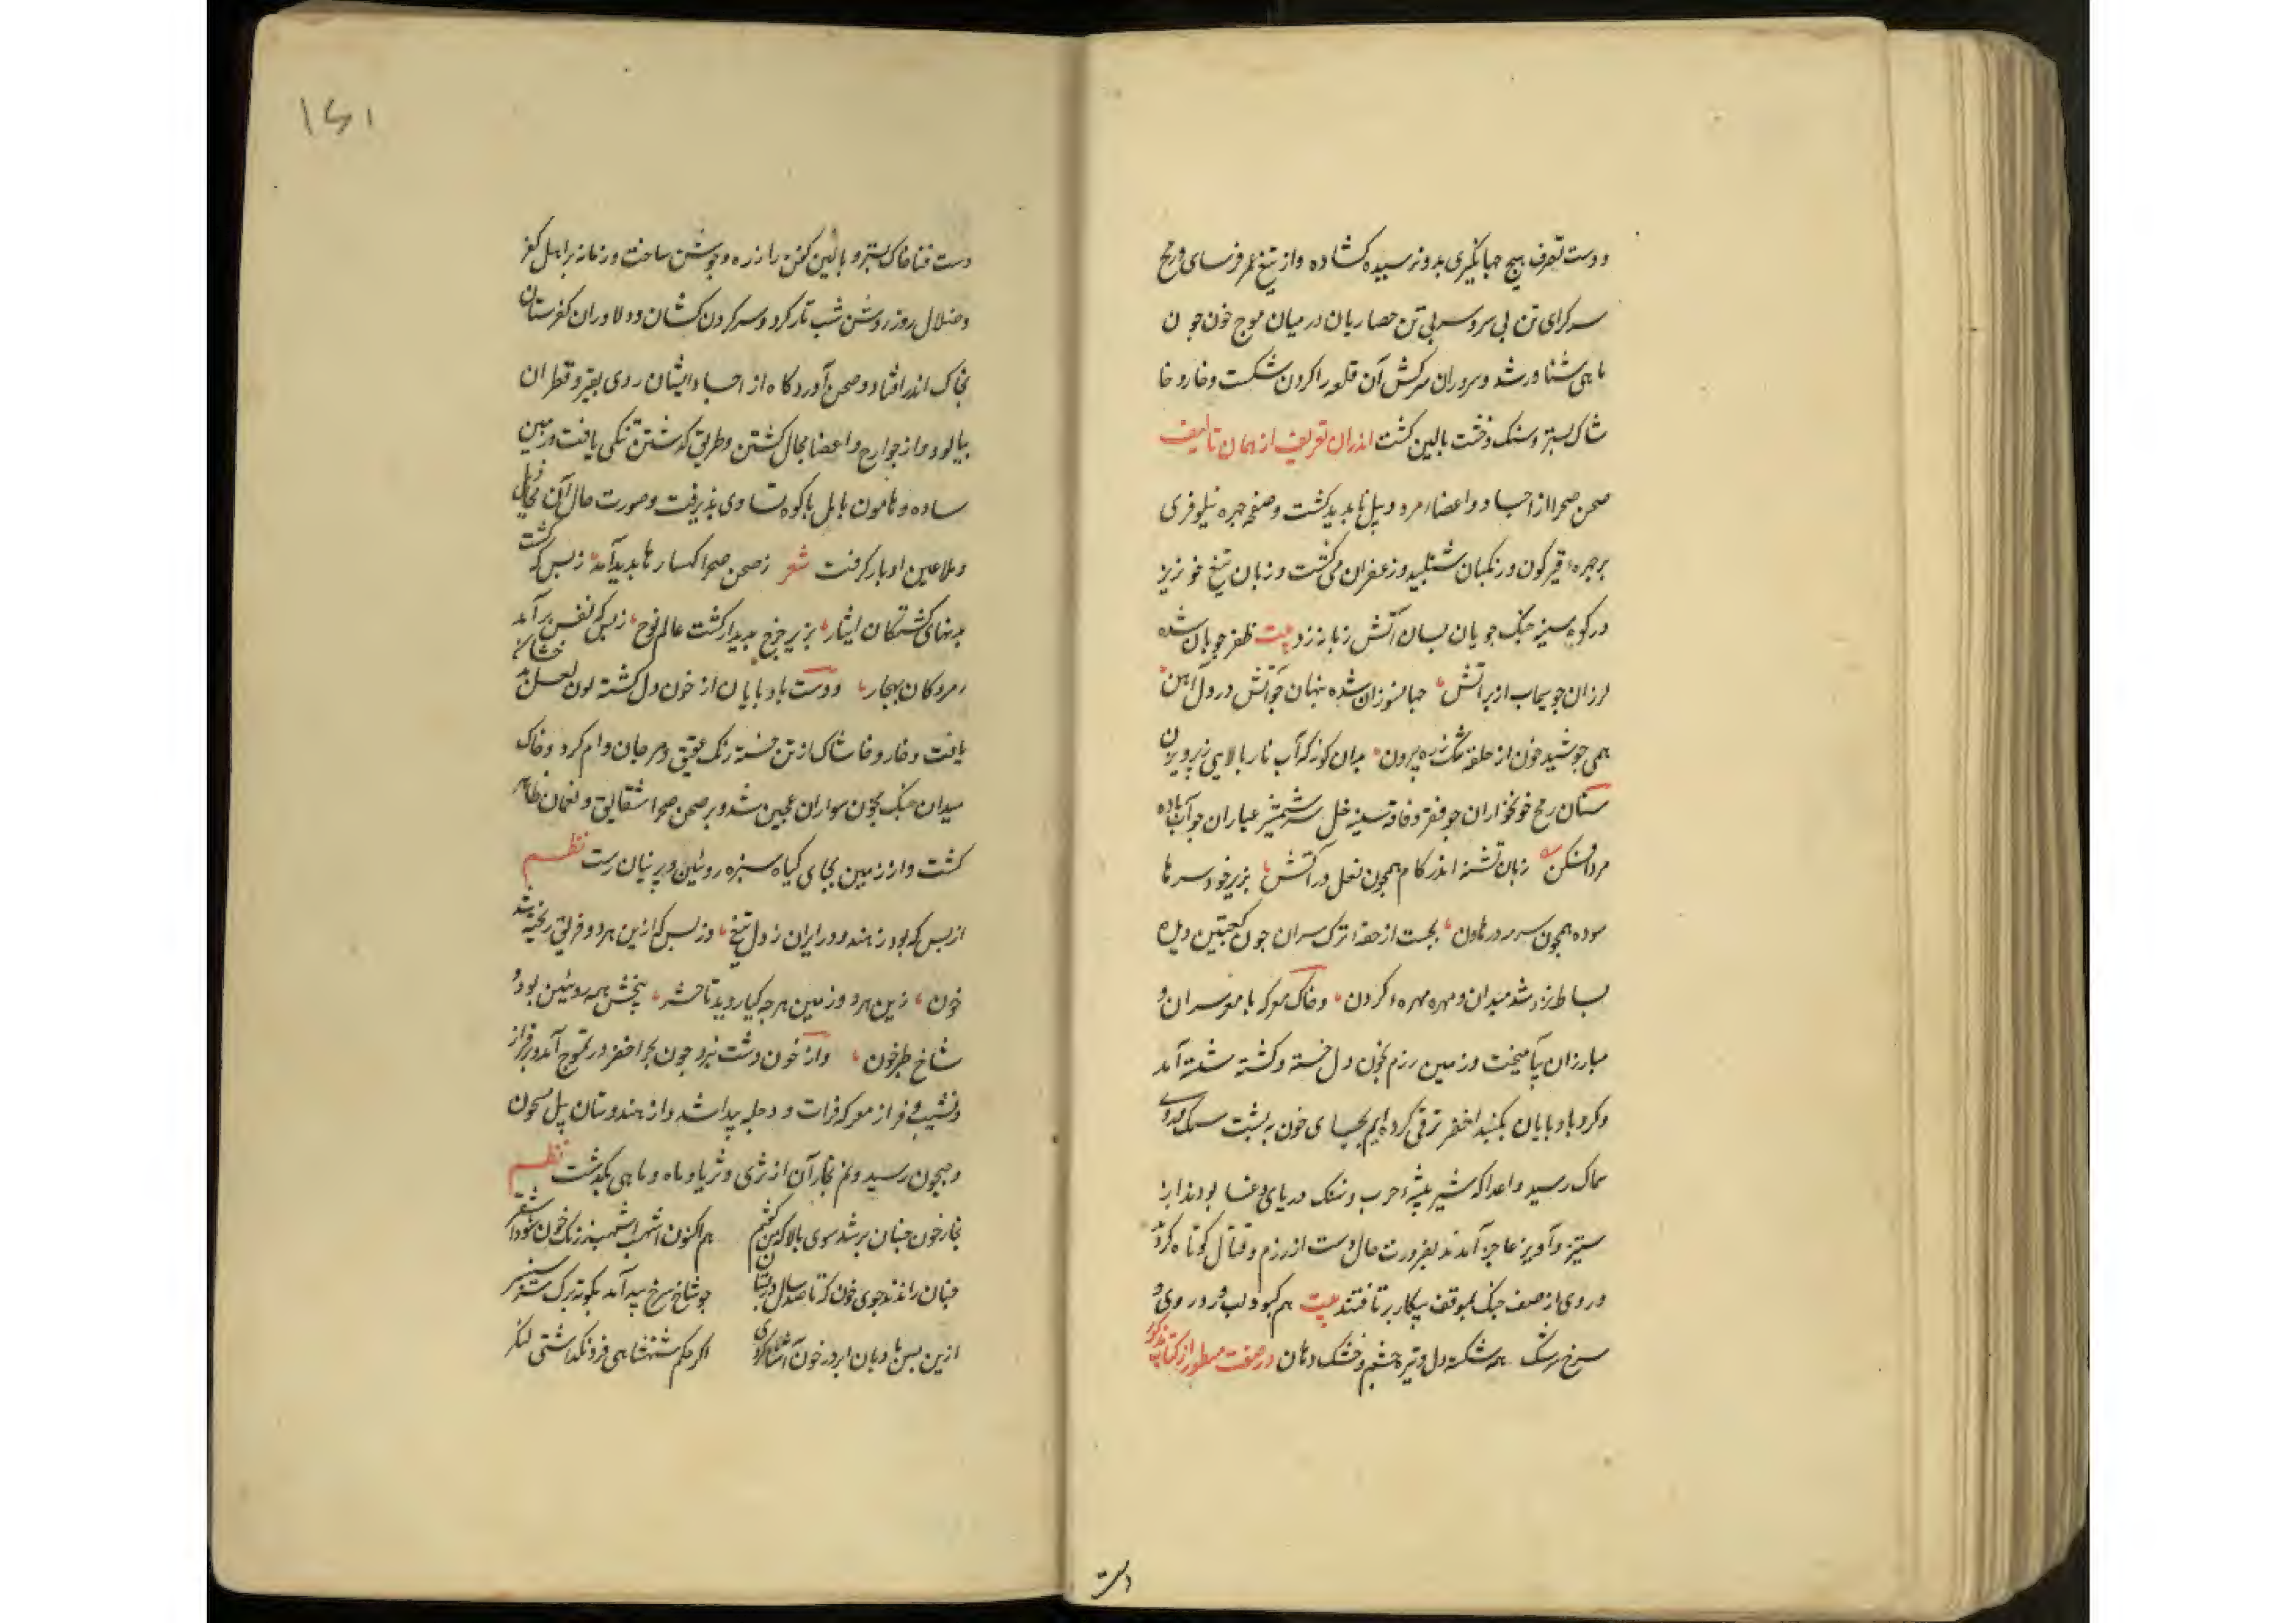 ودست تصرف هیچ جهانگیری بدو نرسیده کشاده واز تیغ عمر فرسای ورمح
سرکرای تن بی سر و سر بی تن حصاریان در میان موج خون جون
ماهی شناور شد وسروران سرکش آن قلعه را کردن شکست وخار و خا
شاک بستر وسنک وخشت بالین کشت اندران تعریف از همان تالیف
صحن صحرا از اجساد واعضاء مرد و پیل نابدید کشت وصفحه جهره نیلوفری
برجهره قیرکون ورنکیان شنبلید وزعفران می کشت وزبان تیغ خونریز
در کوه سینه جنک جویان بسان آتش زبانه زد بیت ظفر جویان شده
لرزان چو سیماب از بر آتش جهانسوزان شده پنهان جو آتش در دل آهن
همی جوشید خون از حلقه تنک زره بیرون بدان کونه که آب نار بالایی زپرویزن
سنان رمح خونخواران جو فقر وفاقه سینه خل سر شمشیر عیاران جو آب باده
مرد افکن زبان تشنه اندر کام همجون نعل در آتش بزیر خود سرها
سوده همجون سرمه در هاون بجست از حقهٔ ترک سران جون کعبتین دیده
بساط نرد شد میدان ومهره مهرهٔ کردن وخاک معرکه با مغز سران و
مبارزان بیامیخت وزمین رزم بخون دل خسته وکشته شسته آمد
وکرد بادپایان بکنبد اخضر ترقی کرد و بیجای خون به پشت سمک و روی
سماک رسید واعدا که شیر بیشهٔ حرب ونهنک دریای وغا بودند از
ستیز وآویز عاجز آمدند بضرورت حال دست از رزم وقتال کوتاه کرده
وروی از صف جنک بموقف پیکار برتافتند بیت هم کبود لب و زرد روی و
سرخ سرشک همه شکسته دل وتیره چشم وخشک دهان در صفت مسطور از کتاب مذکور
دست
۱۶۱
دست فنا خاک بستر و بالین کفن را زره وجوشن ساخت وزمانه بر اهل کفر
وضلال روز روشن شب تار کرد وسر کردن کشان ودلاوران کفرستان
بخاک اندر افتاد وصحن آوردکاه از اجساد ایشان روی بقیر وقطران
بیالود واز جوارح واعضا مجال کشتن وطریق کذشتن تنکی یافت وزمین
ساده وهامون بابل با کوه تساوی پذیرفت وصورت حال آن مخاذیل
وملاعین ادبار کرفت شعر زصحن صحرا کهسارها بدید آمد زبس که کشت
بدنهای کشتکان ایثار بزیر چرخ بدیدار کشت عالم روح زبس که نفس بر آمد
زمردکان بهنجار ودست بادپایان از خون دل کشته لون لعل بدخشان
یافت وخار وخاشاک از تن خسته رنک عقیق ومرجان وام کرد وخاک
میدان جنک بخون سواران عجین شد وبر صحن صحرا شقایق ونعمان ظاهر
کشت واز زمین بجای کیاه سبزه روئین و پرنیان رست نظم
از بس که بود زهند و در ایران زدل تیغ وز بس که ازین هر دو فریق ریخته شد
خون زین هر دو زمین هرجه کیا روید تا حشر بیخش همه روئین بود و
شاخ طبرخون واز خون دشت نبرد جون بحر اخضر در تموج آمد و بر فراز
ونشیب و فراز معرکه فرات ودجله پیدا شد واز هندوستان پیل سیحون
وجیحون رسید ونم بخار آن از ثری وثریا وماه وماهی بکذشت نظم
بخار خون جنان بر شد سوی بالا که من کفتم هم اکنون اشهب اشهب زرنک خون شود اشقر
جنان راندند جوی خون که تا صد سال جو شاخ سرخ بید آمد بکونه برک
ازین بس ماد بان ابر در خون آشنا کردی اکر حکم شهنشاهی فرونکذاشتی لنکر